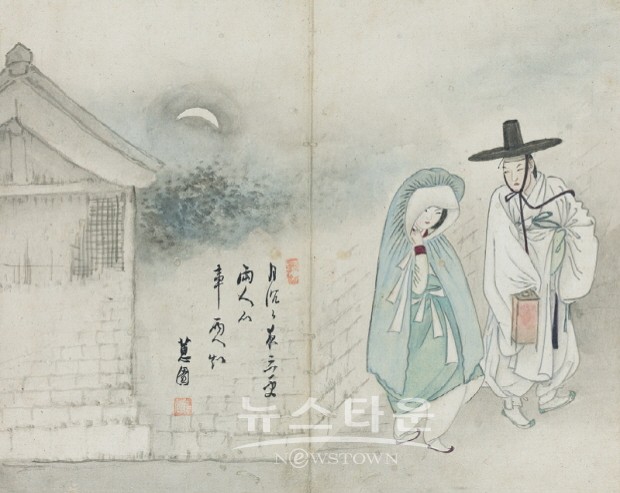 月沈〻夜三更
兩人心
事兩人知
蕙園
뉴스타운
NEWSTOWN